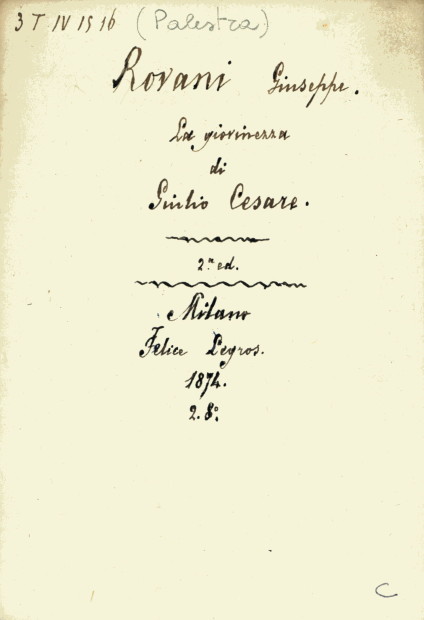 3 T IV 15 16 (Palestra)
Rovani Giuseppe.
La giovinezza
di
Giulio Cesare.
2ª ed.
Milano
Felice Legros.
1874.
2. 8º.
C